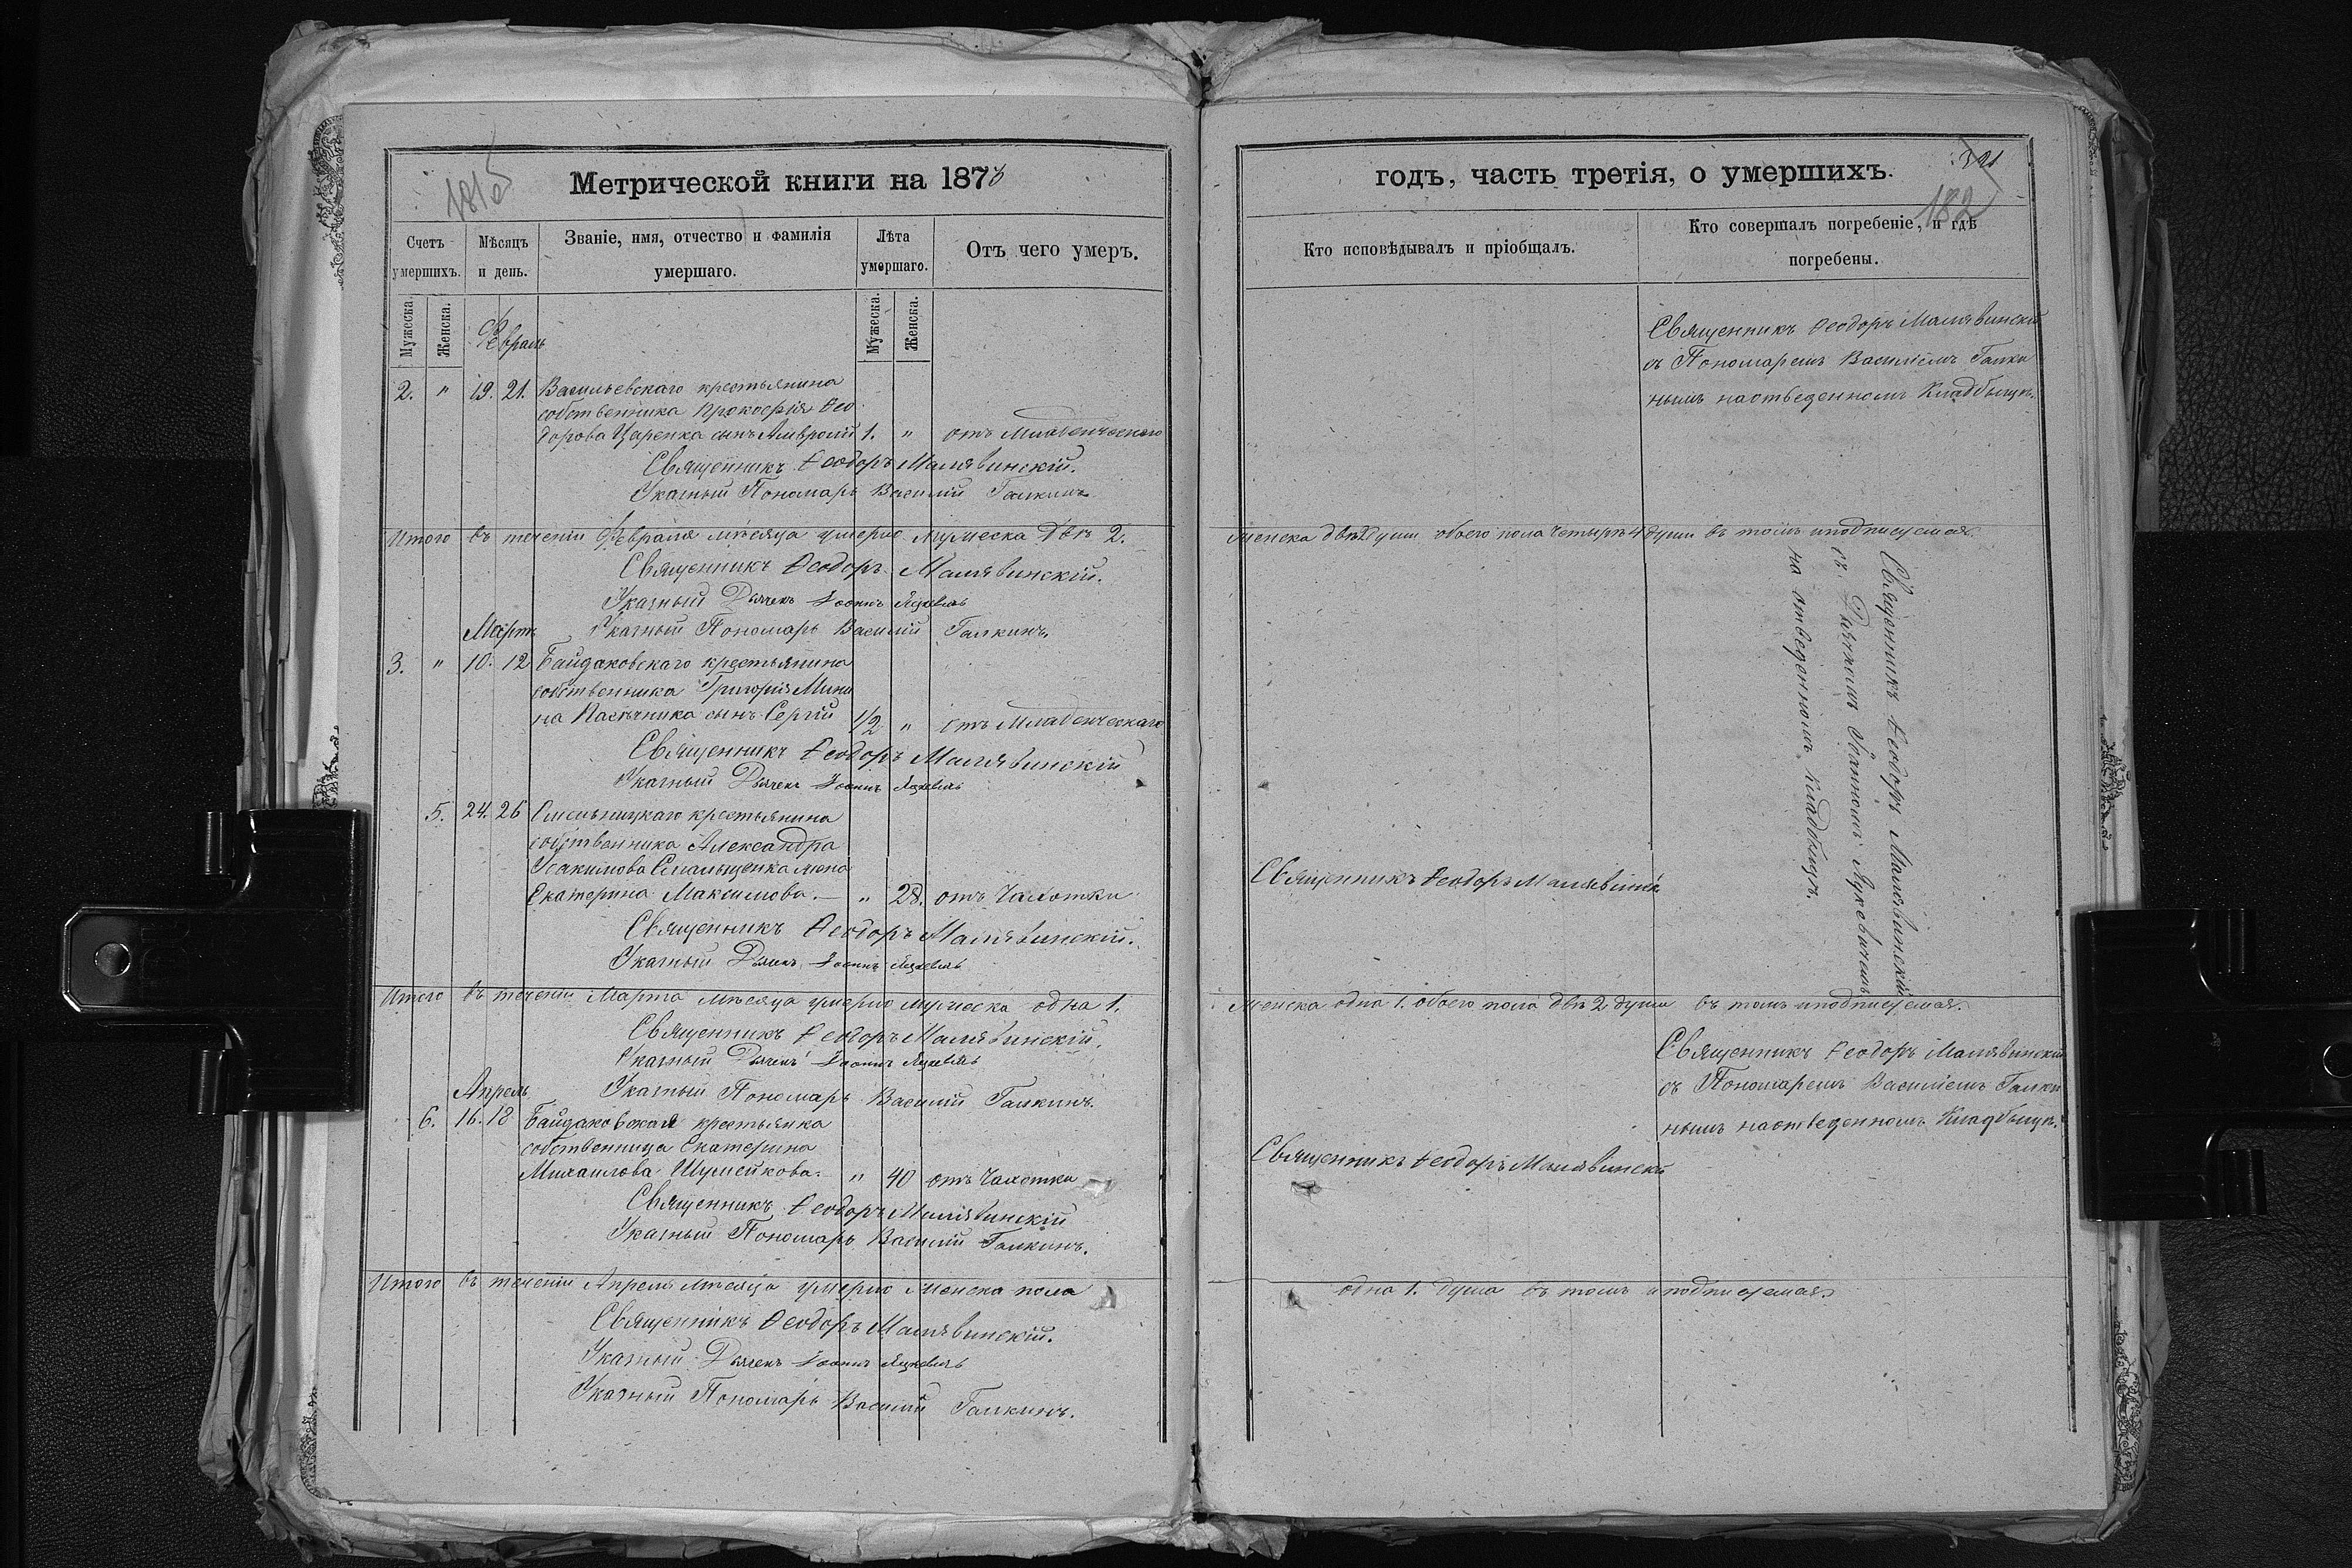 181об
Метрической книги на 1878
Счетъ умершихъ.
Мѣсяцъ и день.
Званіе, имя, отчество и фамилія умершаго.
Лѣта умершаго.
Отъ чего умеръ.
Мужеска.
Женска.
Мужеска.
Женска.
Февраль
2. " 19. 21. Васильевскаго крестьянина
собственника Прокофія Ѳео
дорова Царенка сынъ Амвросій 1. " отъ Младенческаго
Священникъ Ѳеодоръ Малявинскій.
Указный Пономарь Василій Галкинъ
Итого въ теченіи Февраля мѣсяца умерло мужеска двѣ 2.
Священникъ Ѳеодоръ Малявинскій.
Указный Дьячекъ Іоаннъ Яцкевичъ
Указный Пономарь Василій Галкинъ.
Мартъ
3. " 10. 12 Байдаковскаго крестьянина
собственника Григорія Мини
на Пасѣчника сынъ Сергій 1/2 " отъ Младенческаго
Священникъ Ѳеодоръ Малявинскій
Указный Дьячекъ Іоаннъ Яцкевичъ
5. 24. 26 Смельницкаго крестьянина
собственника Александра
Іоакимова жена
Екатерина Максимова. — " 28. отъ Чахотки
Священникъ Ѳеодоръ Малявинскій.
Указный Дьячекъ Іоаннъ Яцкевичъ
Итого въ теченіи Марта мѣсяца умерло мужеска одна 1.
Священникъ Ѳеодоръ Малявинскій.
Указный Дьячекъ Іоаннъ Яцкевичъ
Указный Пономарь Василій Галкинъ.
Апрель
6. 16. 18 Байдаковская крестьянка
собственница Екатерина
Михаилова Шумейкова. " 40 отъ Чахотки
Священникъ Ѳеодоръ Малявинскій
Указный Пономарь Василій Галкинъ.
Итого въ теченіи Апреля мѣсяца умерло женска пола
Священникъ Ѳеодоръ Малявинскій.
Указный Дьячекъ Іоаннъ Яцкевичъ
Указный Пономарь Василій Галкинъ.
321
182
годъ, часть третія, о умершихъ.
Кто исповѣдывалъ и пріобщалъ.
Кто совершалъ погребеніе, и гдѣ погребены.
Священникъ Ѳеодоръ Малявинскій
съ Пономаремъ Василіемъ Галки
нымъ на отведенномъ Кладбищѣ.
женска двѣ 2 души обоего пола четыре 4 души въ томъ и подписуемся.
Священникъ Ѳеодоръ Малявинскій
съ Дьячкомъ Іоанномъ Яцкевичемъ
на отведенномъ Кладбищѣ.
Священникъ Ѳеодоръ Малявинскій
женска одна 1. обоего пола двѣ 2 души въ томъ и подписуемся.
Священникъ Ѳеодоръ Малявинскій
съ Пономаремъ Василіемъ Галки
нымъ на отведенномъ Кладбищѣ.
Священникъ Ѳеодоръ Малявинскій
одна 1. душа въ томъ и подписуемся